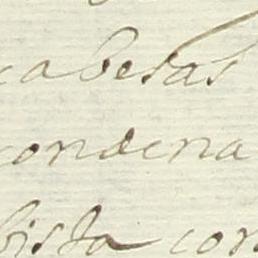 cabesas
condena
bista con